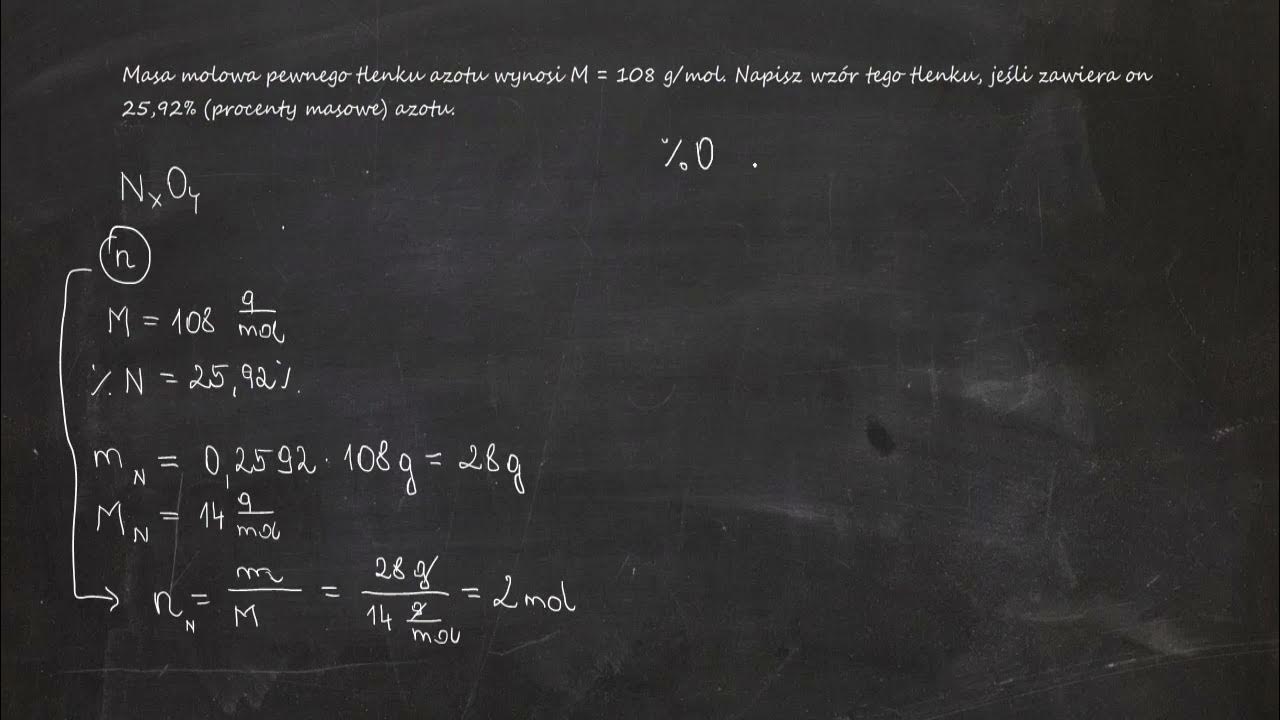 Masa molowa pewnego tlenku azotu wynosi M = 108 g/mol. Napisz wzór tego tlenku, jeśli zawiera on
25,92% (procenty masowe) azotu.
% O .
NₓOᵧ
n
M = 108 g/mol
% N = 25,92%
m_N = 0,2592 · 108 g = 28 g
M_N = 14 g/mol
n_N = m/M = 28 g / 14 g/mol = 2 mol